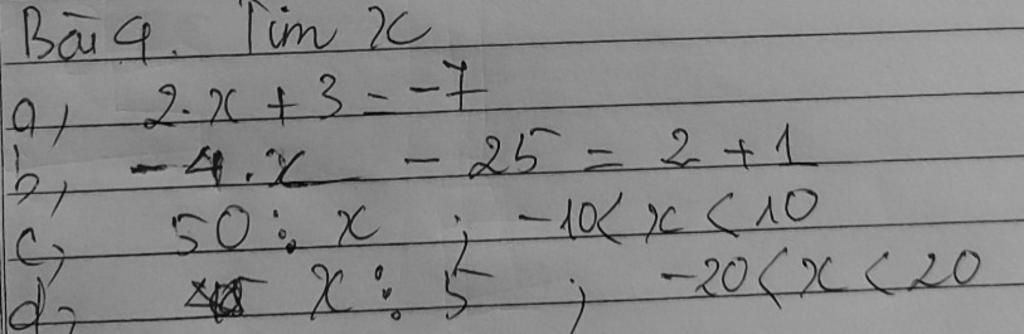 Bài 4. Tìm x
a, 2.x + 3 = -7
b, -4.x - 25 = 2 + 1
c, 50 ⋮ x ; -10 < x < 10
d, x ⋮ 5 ; -20 < x < 20